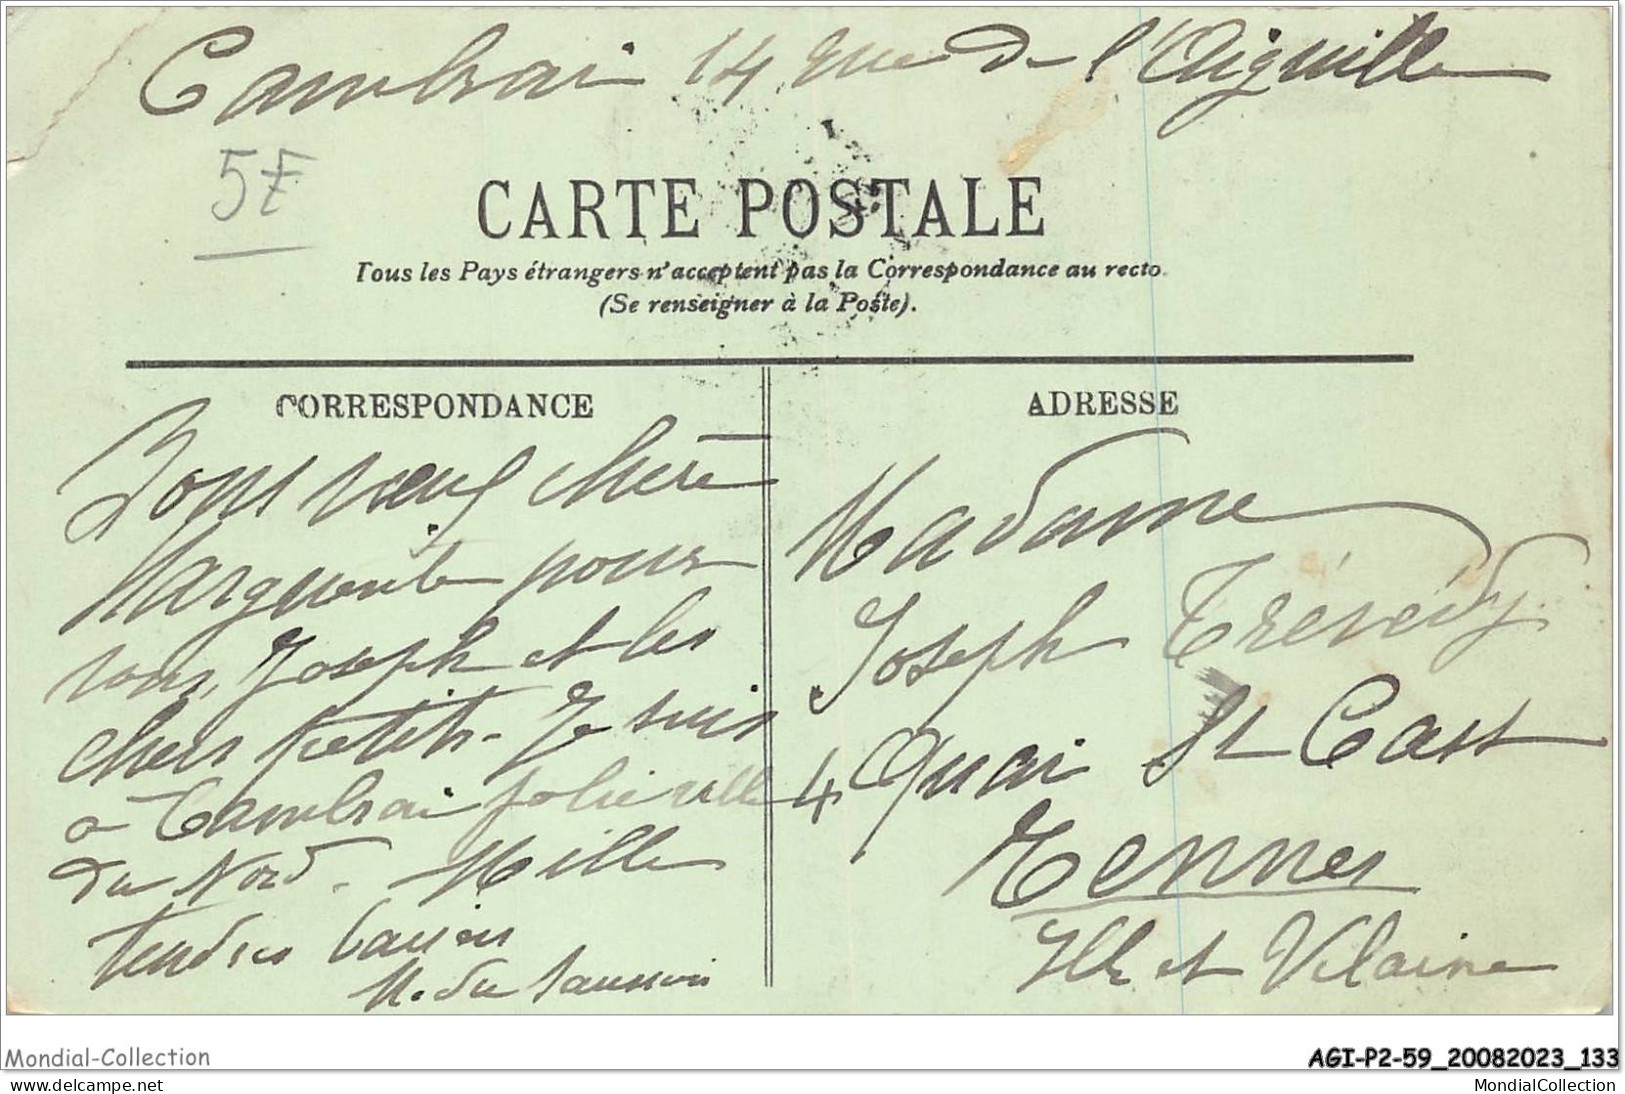 Cambrai 14 rue de l'Aiguille
5F
CARTE POSTALE
Tous les Pays étrangers n'acceptent pas la Correspondance au recto
(Se renseigner à la Poste).
CORRESPONDANCE
Bons vœux chère
Marguerite pour
vous, Joseph et les
chers petits. Je suis
a Cambrai jolie ville
du Nord. Mille
tendres baisers
M. du
ADRESSE
Madame
Joseph Trévédy
4 Quai St Cast
Rennes
Ille et Vilaine
Mondial-Collection
AGI-P2-59_20082023_133
delcampe.net
MondialCollection